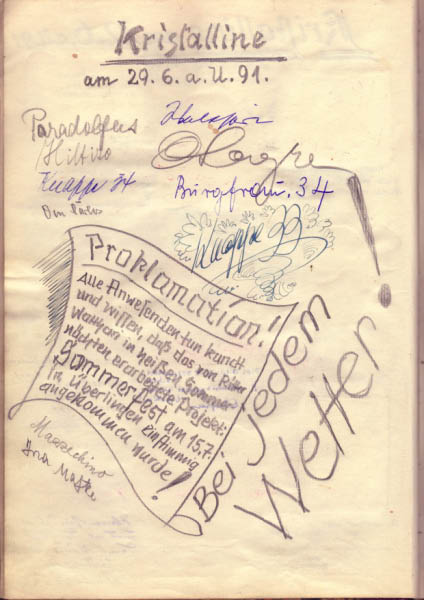 Kristalline
am 29.6.a.U.91.
Paradolfus
Hiltiko
Knappe 34
Burgfrau. 34
Knappe 33
Proklamation!
Alle Anwesenden tun kund
und wissen, daß das von Ritter
in heißen Sommer-
nächten erarbeitete Projekt:
Sommerfest am 15.7.
in Überlingen einstimmig
angekommen wurde!
Bei jedem
Wetter!
Maraschino